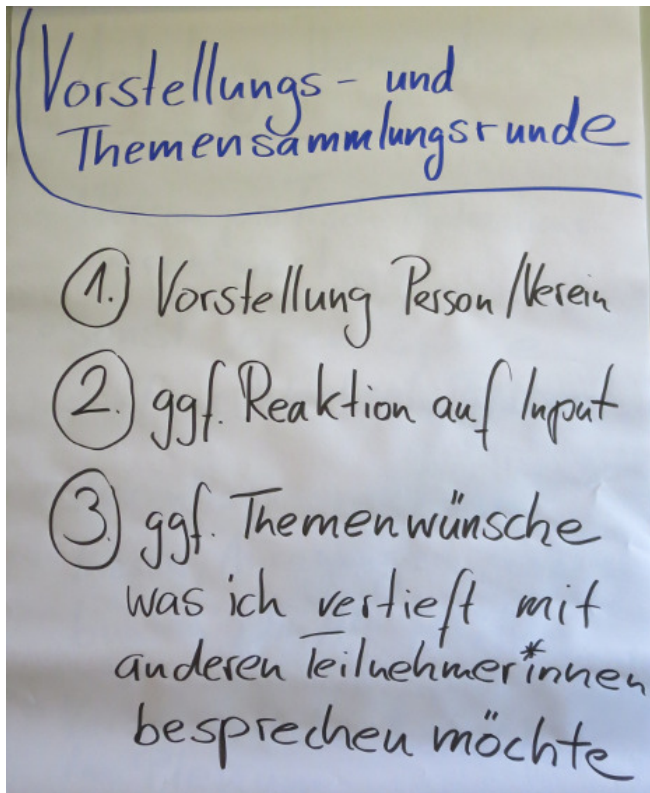 Vorstellungs- und
Themensammlungsrunde
1. Vorstellung Person/Verein
2. ggf. Reaktion auf Input
3. ggf. Themenwünsche
was ich vertieft mit
anderen Teilnehmer*innen
besprechen möchte